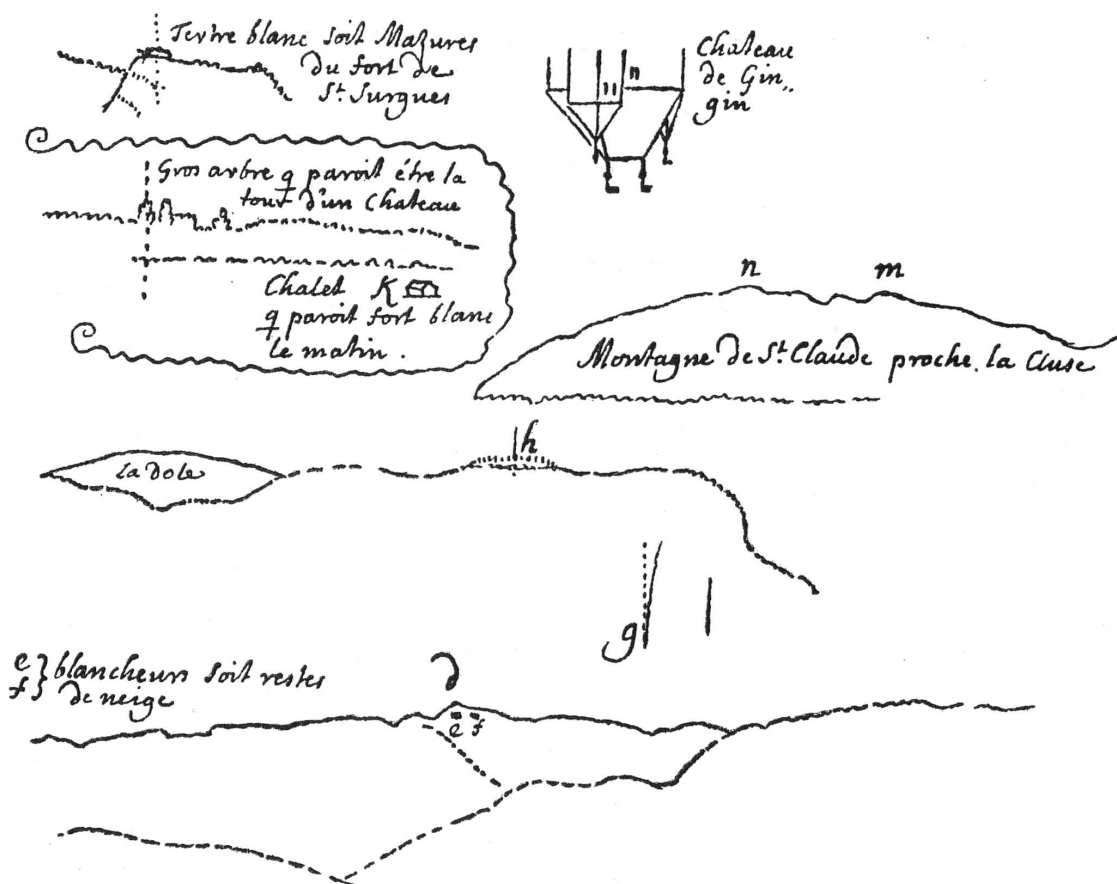 Tertre blanc soit Mazures
du fort de
St. Surgues
Chateau
de Gin,,
gin
n
Gros arbre q paroit étre la
tour d'un Chateau
Chalet K
q paroit fort blanc
le matin.
n m
Montagne de St. Claude proche. la Cluse
h
la Dole
g
e } blancheurs soit restes
f } de neige
d
e f